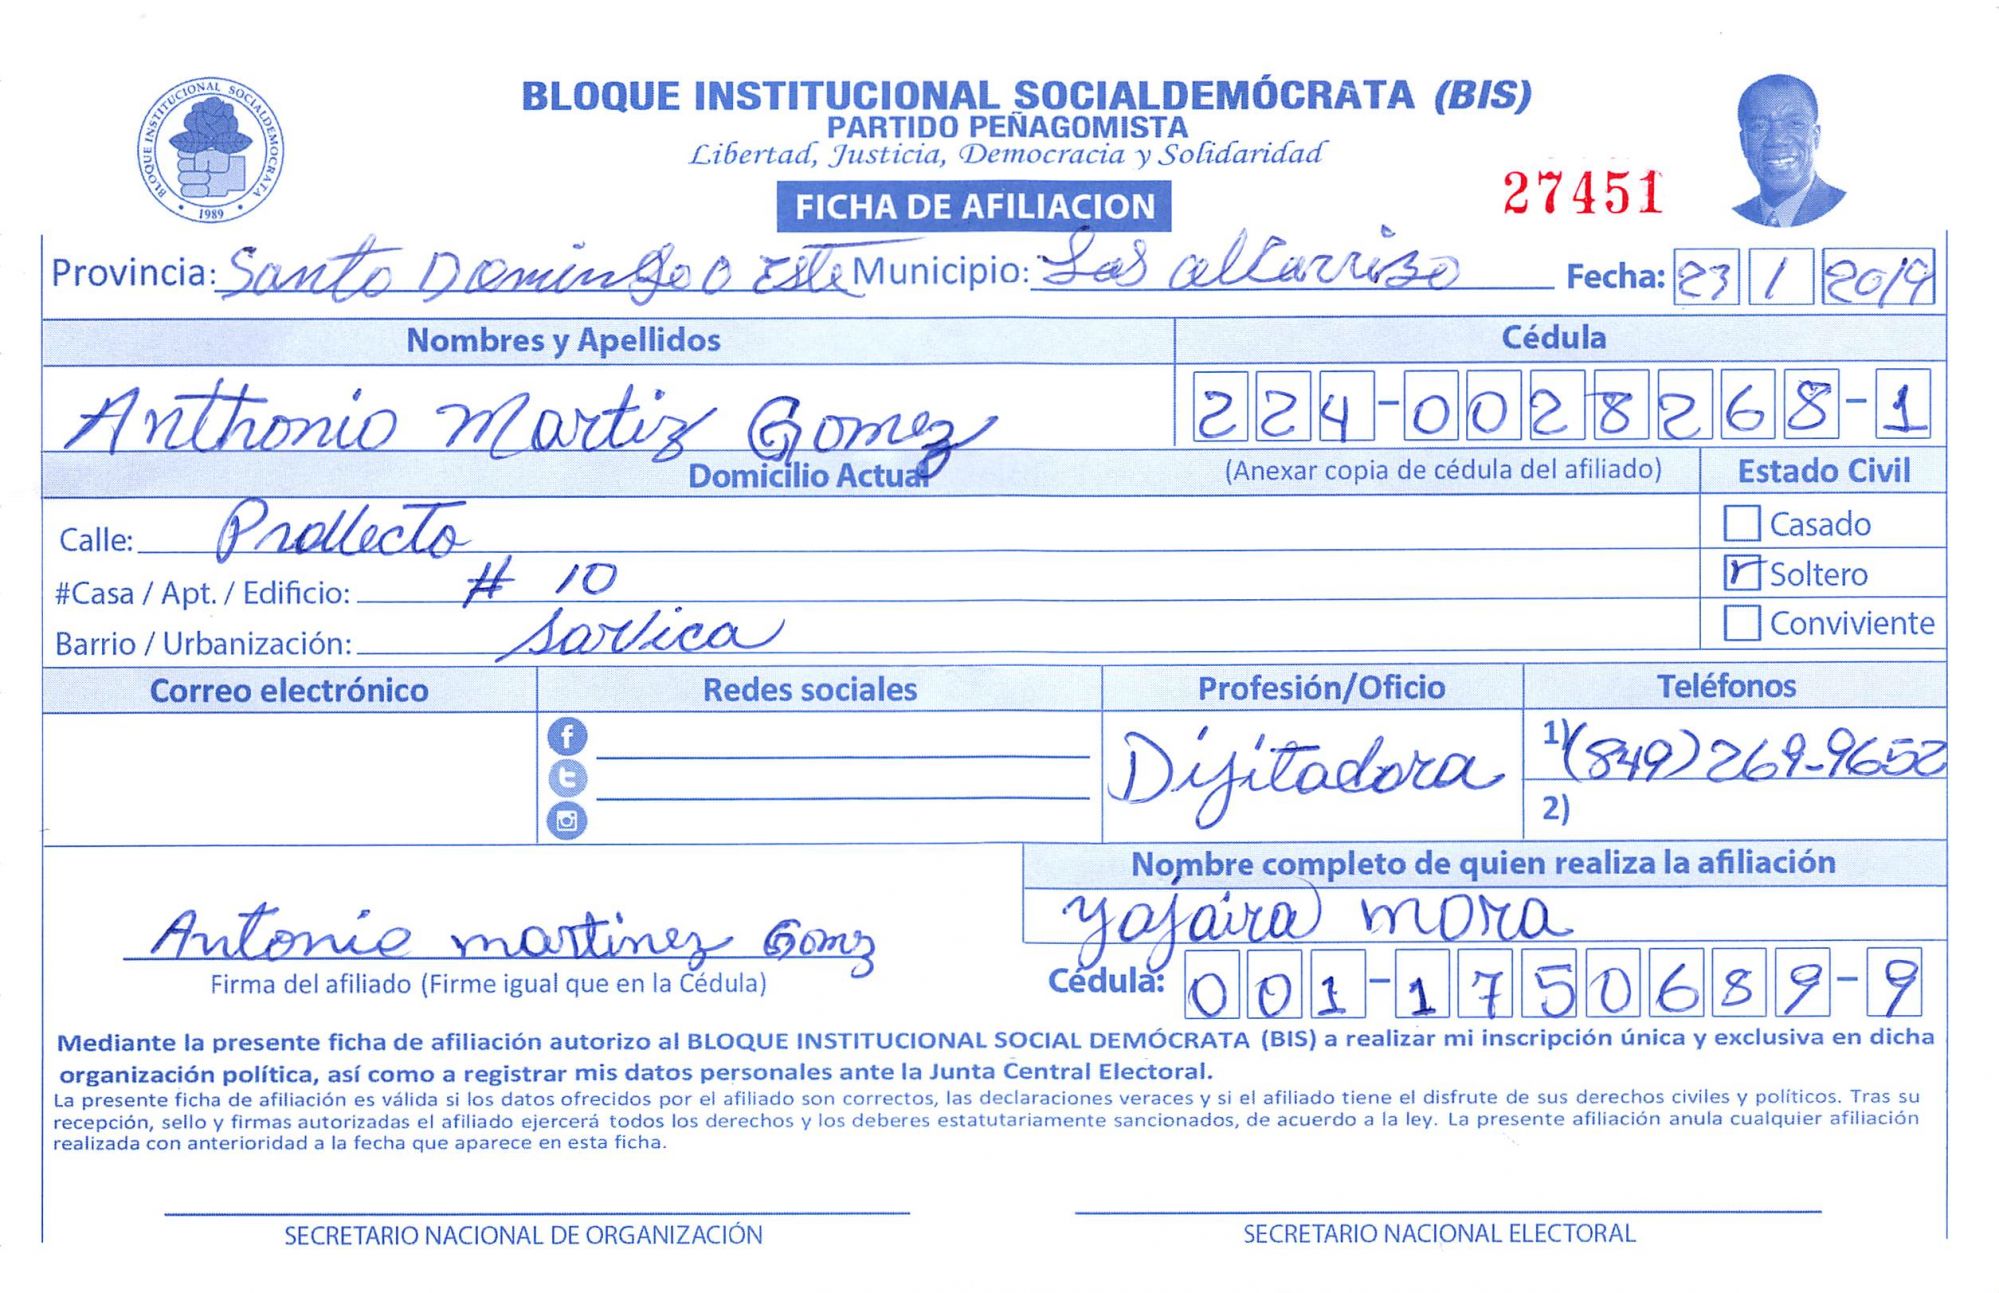 BLOQUE INSTITUCIONAL SOCIALDEMÓCRATA (BIS)
PARTIDO PEÑAGOMISTA
Libertad, Justicia, Democracia y Solidaridad
BLOQUE INSTITUCIONAL SOCIALDEMOCRATA
1989
FICHA DE AFILIACION
27451
Provincia: Santo Domingo Oeste Municipio: Los alcarriso Fecha: 23 1 2019
Nombres y Apellidos Cédula
Anthonio Martiz Gomez 224-0028268-1
Domicilio Actual (Anexar copia de cédula del afiliado) Estado Civil
Calle: Prollecto Casado
#Casa / Apt. / Edificio: # 10 Soltero
Barrio / Urbanización: Savica Conviviente
Correo electrónico Redes sociales Profesión/Oficio Teléfonos
Dijitadora 1) (849) 269-9652
2)
Nombre completo de quien realiza la afiliación
Yajaira mora
Antonio martinez Gomz
Firma del afiliado (Firme igual que en la Cédula) Cédula: 001-1750689-9
Mediante la presente ficha de afiliación autorizo al BLOQUE INSTITUCIONAL SOCIAL DEMÓCRATA (BIS) a realizar mi inscripción única y exclusiva en dicha
organización política, así como a registrar mis datos personales ante la Junta Central Electoral.
La presente ficha de afiliación es válida si los datos ofrecidos por el afiliado son correctos, las declaraciones veraces y si el afiliado tiene el disfrute de sus derechos civiles y políticos. Tras su
recepción, sello y firmas autorizadas el afiliado ejercerá todos los derechos y los deberes estatutariamente sancionados, de acuerdo a la ley. La presente afiliación anula cualquier afiliación
realizada con anterioridad a la fecha que aparece en esta ficha.
SECRETARIO NACIONAL DE ORGANIZACIÓN SECRETARIO NACIONAL ELECTORAL